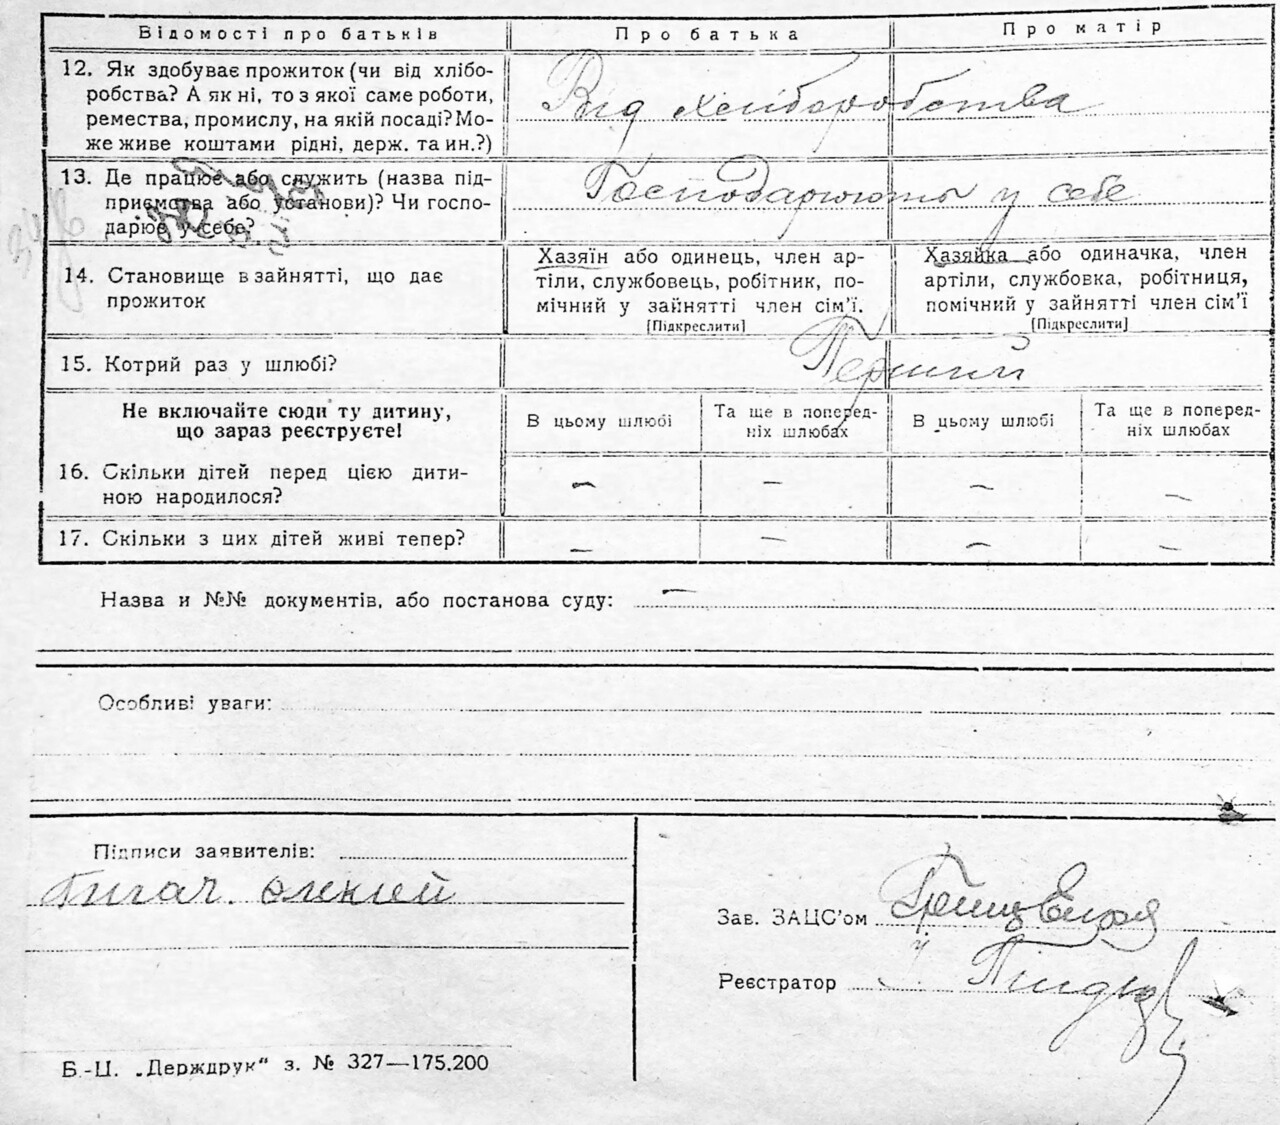 Відомості про батьків Про батька Про матір
12. Як здобуває прожиток (чи від хлібо-
робства? А як ні, то з якої саме роботи,
ремества, промислу, на якій посаді? Мо-
же живе коштами рідні, держ. та ин.?)
Від хліборобства
13. Де працює або служить (назва під-
приємства або установи)? Чи госпо-
дарює у себе?
Господарюють у себе
14. Становище в зайнятті, що дає
прожиток
Хазяїн або одинець, член ар-
тіли, службовець, робітник, по-
мічний у зайнятті член сім'ї.
[Підкреслити]
Хазяйка або одиначка, член
артіли, службовка, робітниця,
помічний у зайнятті член сім'ї
[Підкреслити]
15. Котрий раз у шлюбі?
Перший
Не включайте сюди ту дитину,
що зараз реєструєте!
В цьому шлюбі
Та ще в поперед-
ніх шлюбах
В цьому шлюбі
Та ще в поперед-
ніх шлюбах
16. Скільки дітей перед цією дити-
ною народилося?
— — — —
17. Скільки з цих дітей живі тепер?
— — — —
Назва и №№ документів, або постанова суду: —
Особливі уваги:
Підписи заявителів:
олексій
Зав. ЗАЦС'ом
Реєстратор
Б.-Ц. „Держдрук" з. № 327—175.200